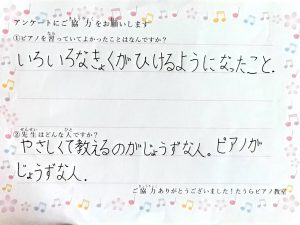 アンケートにご協力をお願いします
①ピアノを習っていてよかったことはなんですか?
いろいろなきょくがひけるようになったこと.
②先生はどんな人ですか?
やさしくて教えるのがじょうずな人。ピアノが
じょうずな人.
ご協力ありがとうございました!たうらピアノ教室